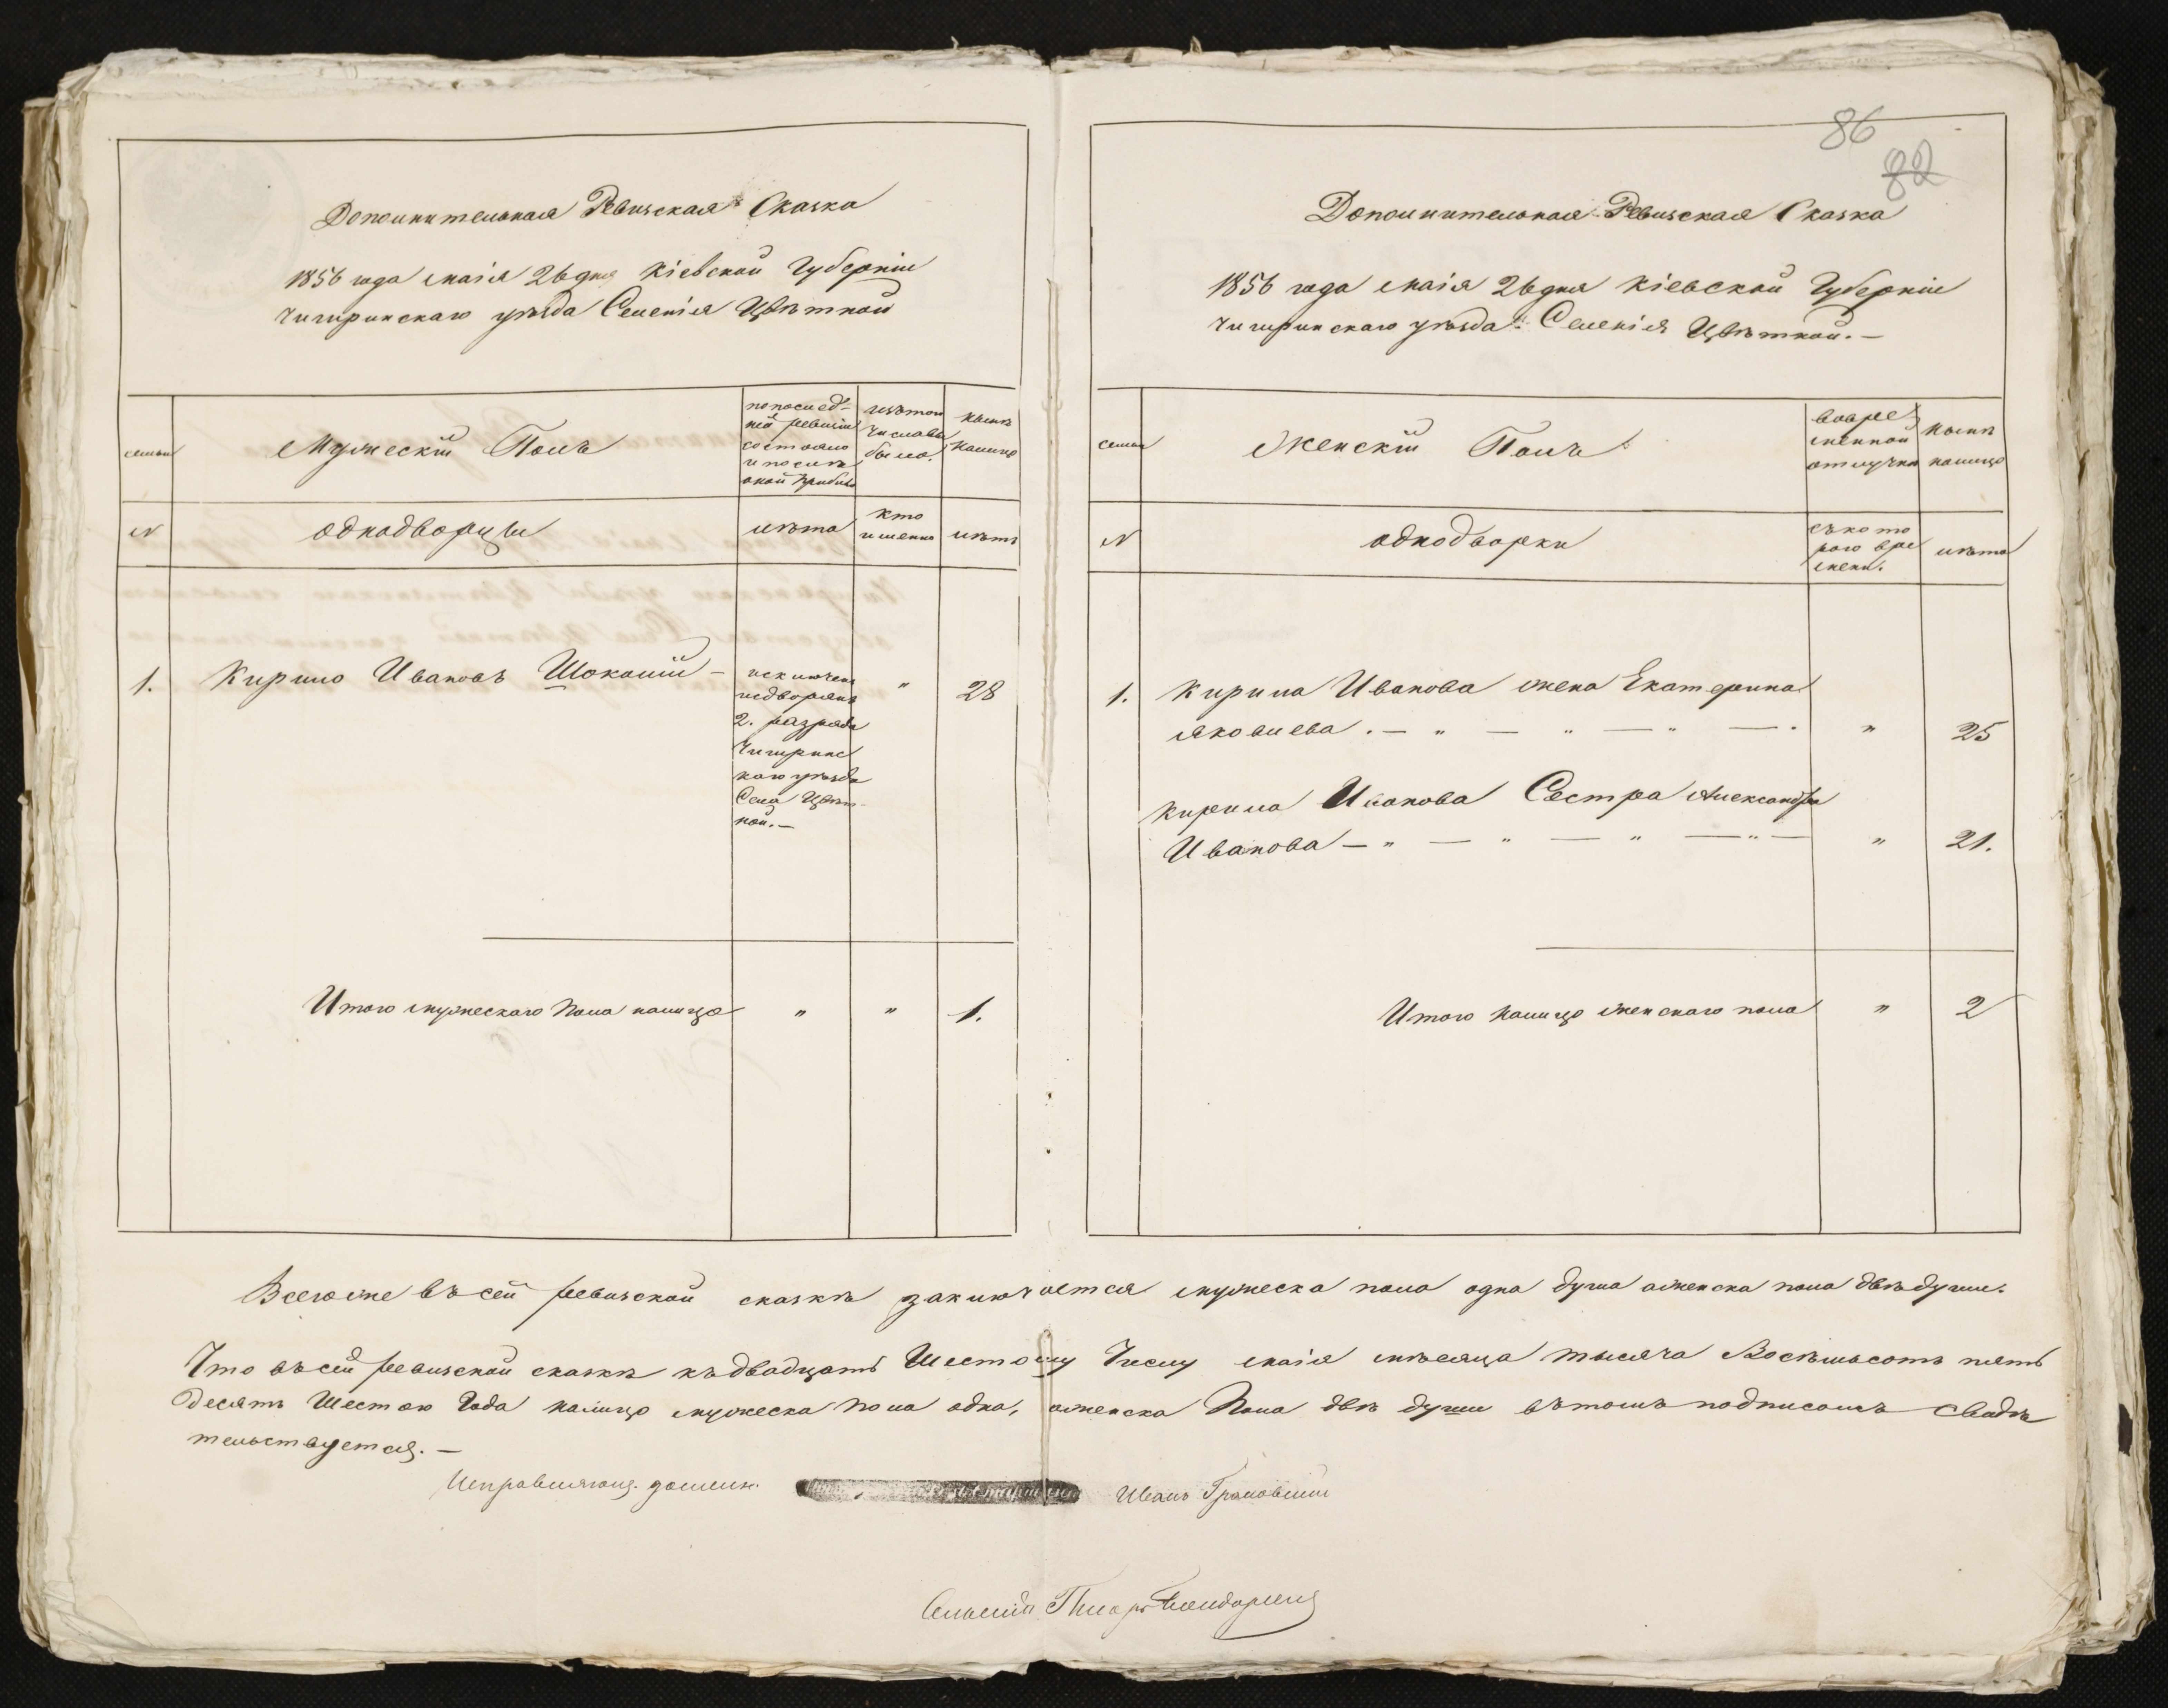 Дополнительная Ревизская Сказка
1856 года маія 26 дня Кіевской Губерніи
Чигиринскаго уѣзда Селенія Цвѣтной
семьи
Мужескій Полъ
по послед-
ней ревизіи
состояло
и после
оной прибыло
изъ того
числа вы
было.
нынѣ
налицо
№
однодворцы
лѣта
кто
именно
лѣтъ
1.
Кирило Ивановъ Шокалій –
исключенъ
из дворянъ
2. разряда
Чигиринс
каго уѣзда
Села Цвѣт-
ной. –
"
28
Итого мужескаго пола налицо
"
"
1.
86
82
Дополнительная Ревизская Сказка
1856 года маія 26 дня Кіевской Губерніи
Чигиринскаго уѣзда Селенія Цвѣтной. –
семьи
Женскій Полъ
во вре
менной
отлучки
нынѣ
налицо
№
однодворки
съ кото
раго вре
мени.
лѣта
1.
Кирила Иванова жена Екатерина
Яковлева . – " – " – " – .
"
25
Кирила Иванова Сестра Александра
Иванова – " – " – " – " –
"
21.
Итого налицо женскаго пола
"
2
Всего же въ сей ревизской сказкѣ заключается мужеска пола одна душа а женска пола двѣ души.
Что въ сей ревизской сказкѣ къ двадцать Шестому Числу маія мѣсяца тысяча Восемьсотъ пять
десятъ Шестаго Года налицо мужеска пола одна, а женска Пола двѣ души въ томъ подписомъ свидѣ
тельствуется. –
Исправляющ. должн. Иванъ Грановскій
Сельскій Писарь